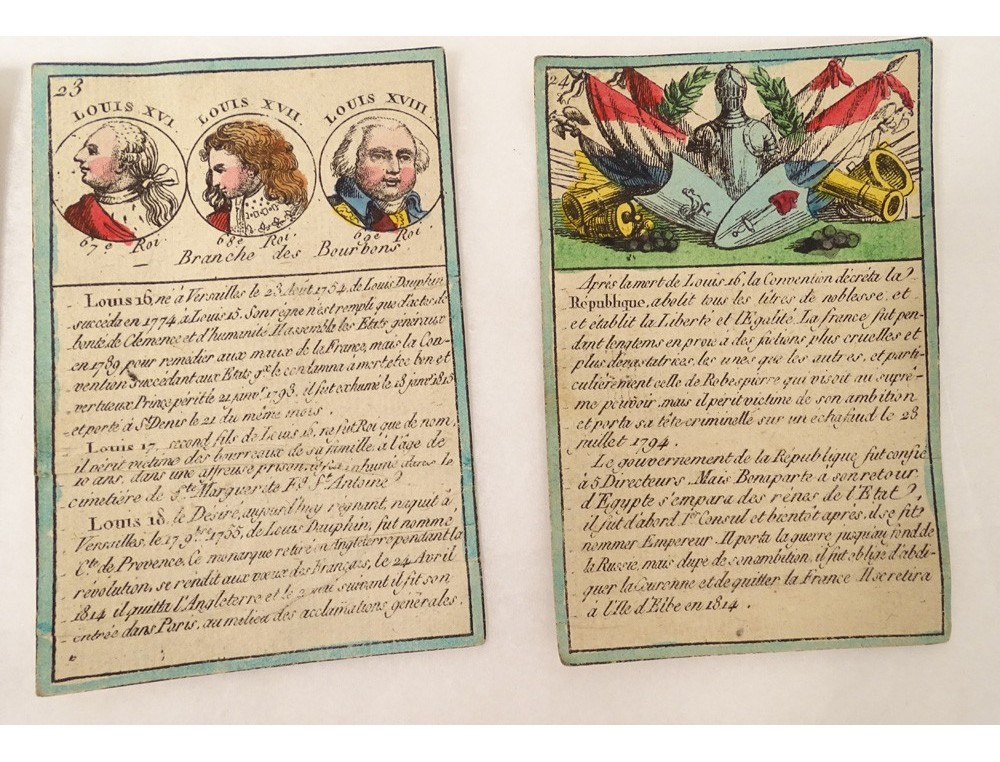 23
LOUIS XVI.
LOUIS XVII.
LOUIS XVIII.
67e Roi
68e Roi
69e Roi
Branche des Bourbons
Louis 16, né à Versailles le 23 Août 1754, de Louis Dauphin
succéda en 1774 à Louis 15. Son règne n'est rempli que d'actes de
bonté de Clémence et d'humanité. Il assembla les Etats généraux
en 1789 pour remédier aux maux de la France, mais la Con-
vention succédant aux Etats gx le condamna a mort et ce bon et
vertueux Prince périt le 21 janvr 1793, il fut exhumé le 18 janvr 1815
et porté à St Denis le 21 du même mois.
Louis 17, second fils de Louis 16, ne fut Roi que de nom,
il périt victime des bourreaux de sa famille à l'âge de
10 ans, dans une affreuse prison, inhumé dans le
cimetière de Ste Marguerite Fg St Antoine
Louis 18, le Désiré, aujourd'huy régnant, naquit à
Versailles, le 17 9bre 1755, de Louis Dauphin, fut nommé
Cte de Provence. Ce monarque retiré en Angleterre pendant la
révolution, se rendit aux vœux des Français, le 24 Avril
1814 il quitta l'Angleterre et le 2 mai suivant il fit son
entrée dans Paris, au milieu des acclamations générales.
24
Après la mort de Louis 16, la Convention décréta la
République, abolit tous les titres de noblesse, et
et établit la Liberté et l'Egalité. La france fut pen-
dant longtems en proie à des factions plus cruelles et
plus dévastatrices les unes que les autres, et parti-
culièrement celle de Robespierre qui visoit au suprê-
me pouvoir, mais il périt victime de son ambition
et porta sa tête criminelle sur un échafaud le 28
juillet 1794.
Le gouvernement de la République fut confié
à 5 Directeurs. Mais Bonaparte a son retour
d'Egypte s'empara des rênes de l'Etat,
il fut d'abord 1er Consul et bientôt après, il se fit
nommer Empereur. Il porta la guerre jusqu'au fond de
la Russie, mais dupe de son ambition, il fut obligé d'abdi-
quer la Couronne et de quitter la France. Il se retira
à l'Ile d'Elbe en 1814.